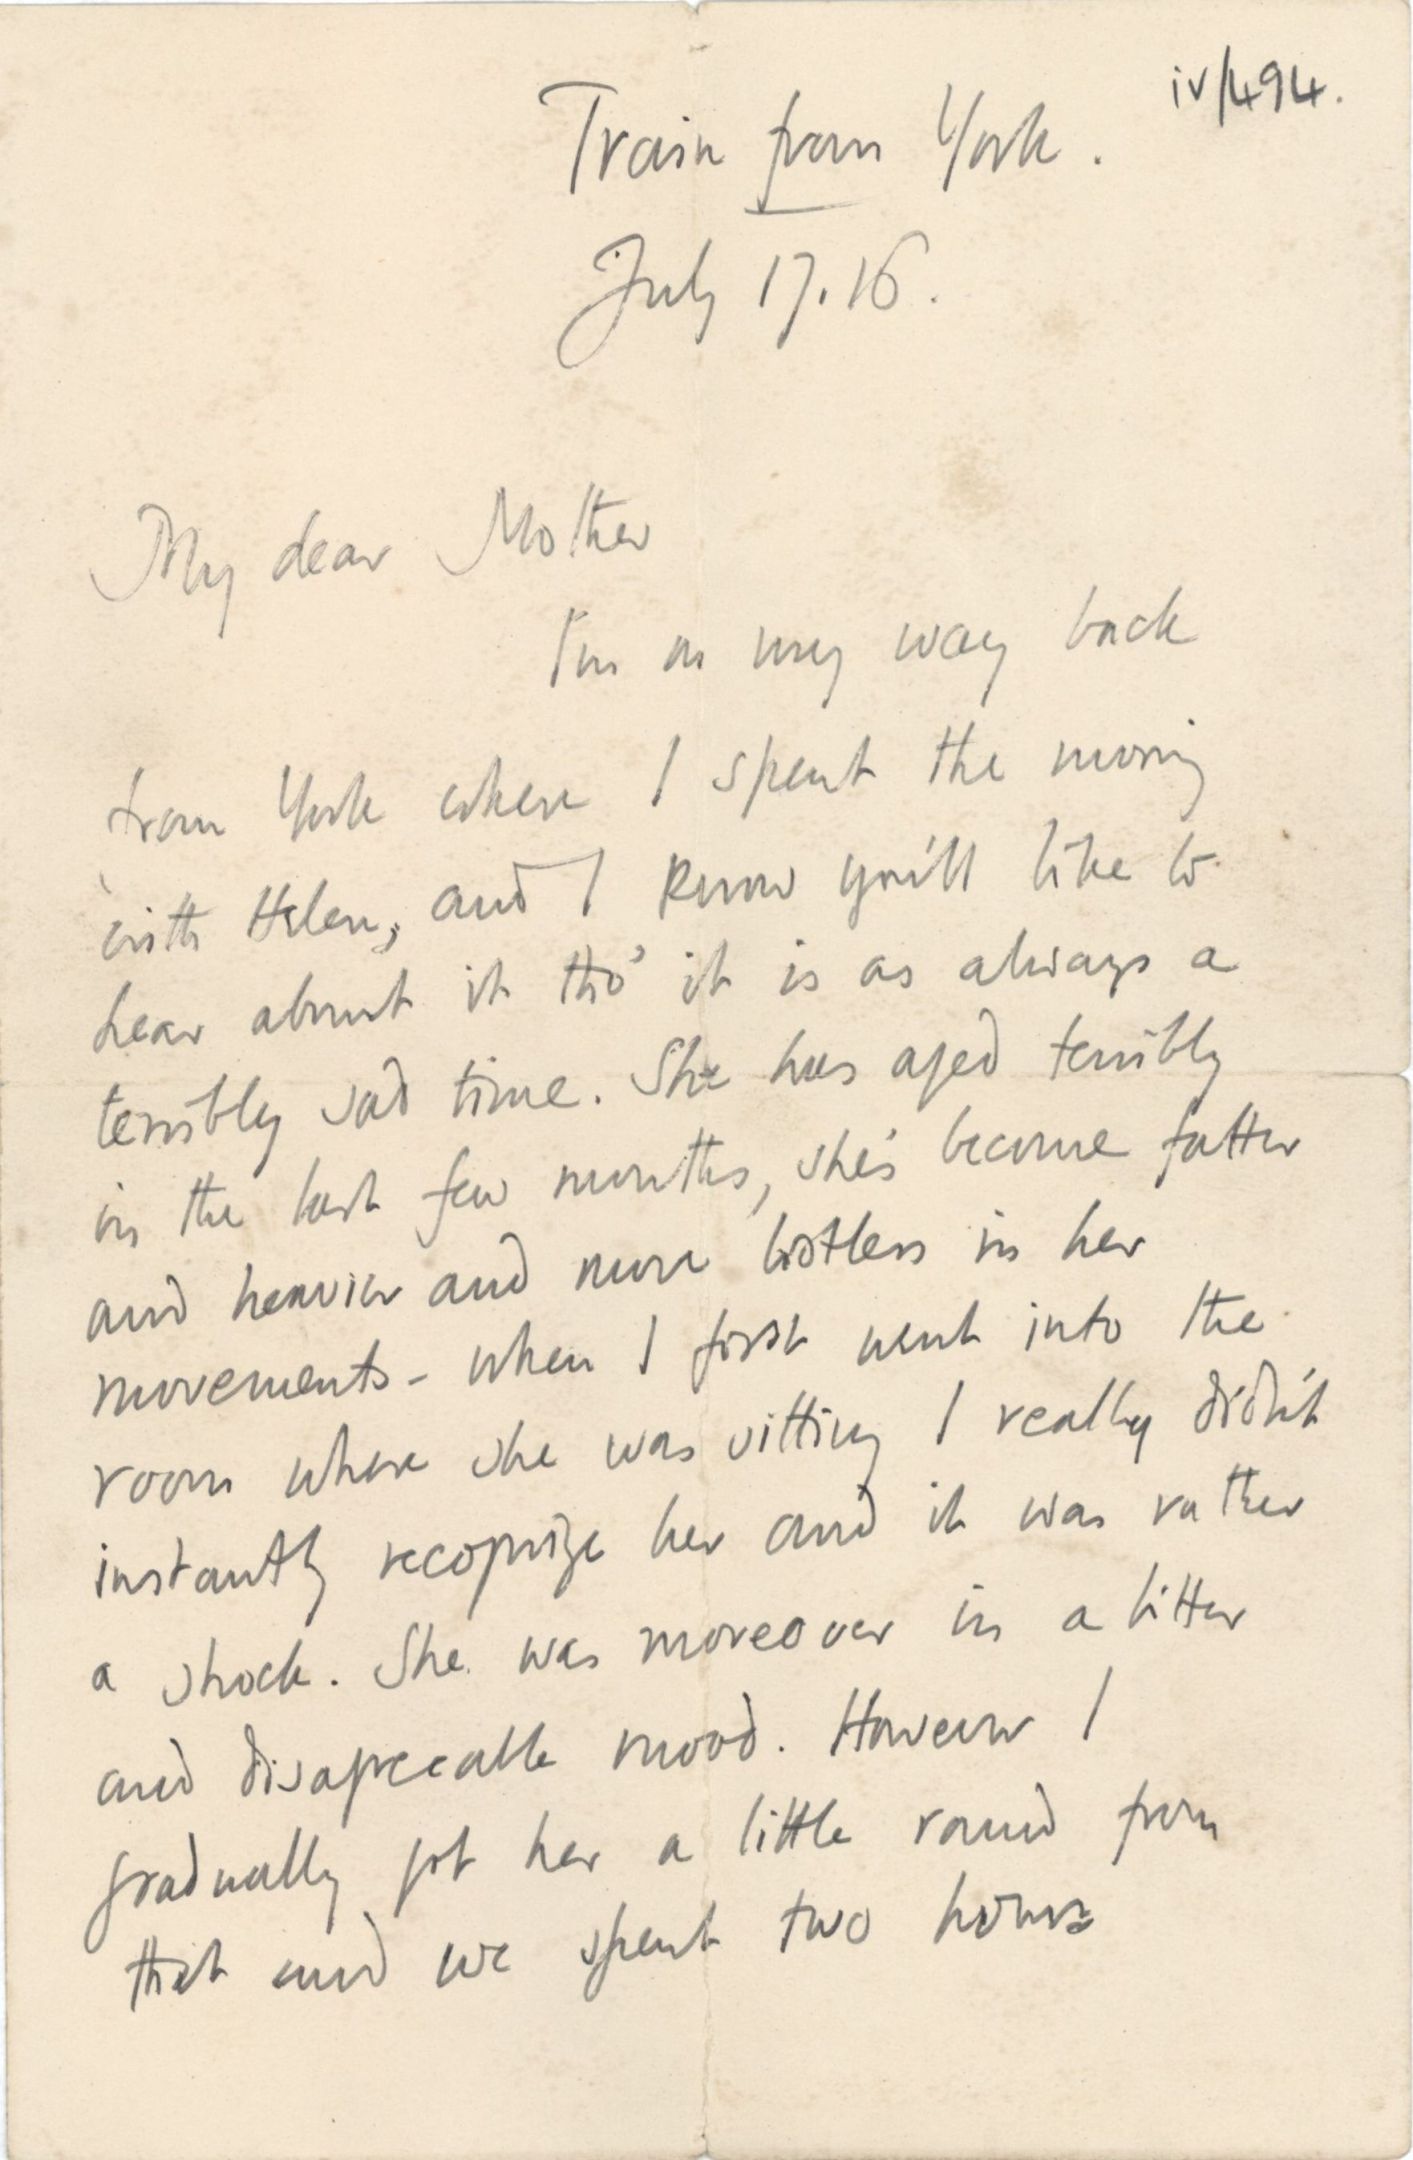 iv/494.
Train from York.
July 17.16.
My dear Mother
I'm on my way back
from York where I spent the morning
with Helen, and I know you'll like to
hear about it tho' it is as always a
terribly sad time. She has aged terribly
in the last few months, she's become fatter
and heavier and more listless in her
movements - when I first went into the
room where she was sitting I really didn't
instantly recognize her and it was rather
a shock. She was moreover in a bitter
and disagreeable mood. However I
gradually got her a little round from
that and we spent two hours